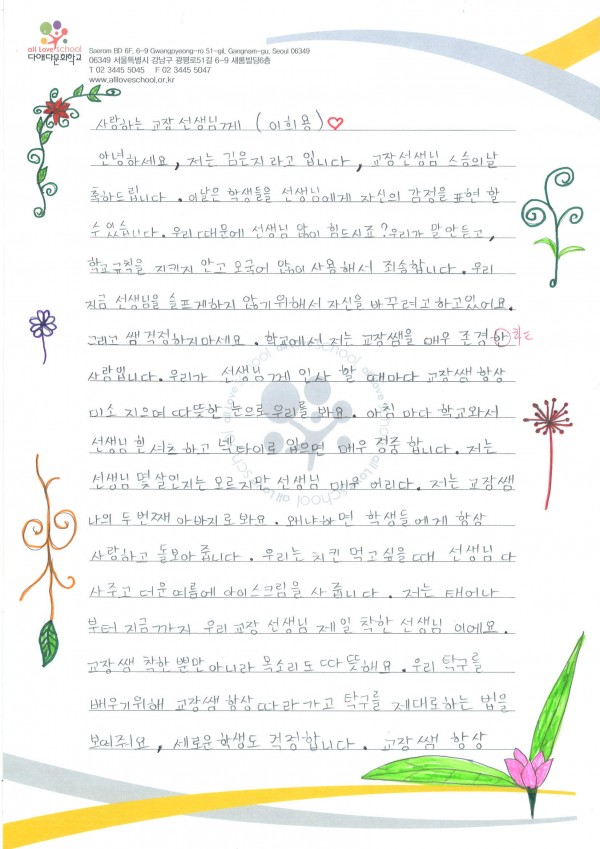 all Love school
다애다문화학교
Saerom BD 6F, 6-9 Gwangpyeong-ro 51-gil, Gangnam-gu, Seoul 06349
06349 서울특별시 강남구 광평로51길 6-9 새롬빌딩6층
T 02 3445 5045 F 02 3445 5047
www.allloveschool.or.kr
사랑하는 교장 선생님께 ( 이희용 )
안녕하세요, 저는 김은지라고 입니다, 교장선생님 스승의날
축하드립니다. 이날은 학생들을 선생님에게 자신의 감정을 표현 할
수 있습니다. 우리 때문에 선생님 많이 힘드시죠? 우리가 말 안듣고,
학교규칙을 지키지 안고 모국어 많이 사용해서 죄송합니다. 우리
지금 선생님을 슬프게하지 않기위해서 자신을 바꾸려고하고있어요.
그리고 쌤 걱정하지마세요. 학교에서 저는 교장쌤을 매우 존경 한
사람입니다. 우리가 선생님께 인사 할 때마다 교장쌤 항상
미소 지으며 따뜻한 눈으로 우리를 봐요. 아침 마다 학교와서
선생님 흰 셔츠 하고 넥타이로 입으면 매우 정중 합니다. 저는
선생님 몇살인지는 모르지만 선생님 매우 어리다. 저는 교장쌤
나의 두번째 아바지로 봐요. 왜냐하면 학생들에게 항상
사랑하고 돌보아 줍니다. 우리는 치킨 먹고싶을때 선생님 다
사주고 더운 여름에 아이스크림을 사 줍니다. 저는 태어나
부터 지금까지 우리 교장 선생님 제일 착한 선생님 이에요.
교장쌤 착한 뿐만 아니라 목소리도 따뜻해요. 우리 탁구를
배우기위해 교장쌤 항상 따라가고 탁구를 제대로하는 법을
보여줘요, 새로운 학생도 걱정합니다. 교장쌤 항상
all Love school all Love school all Love school